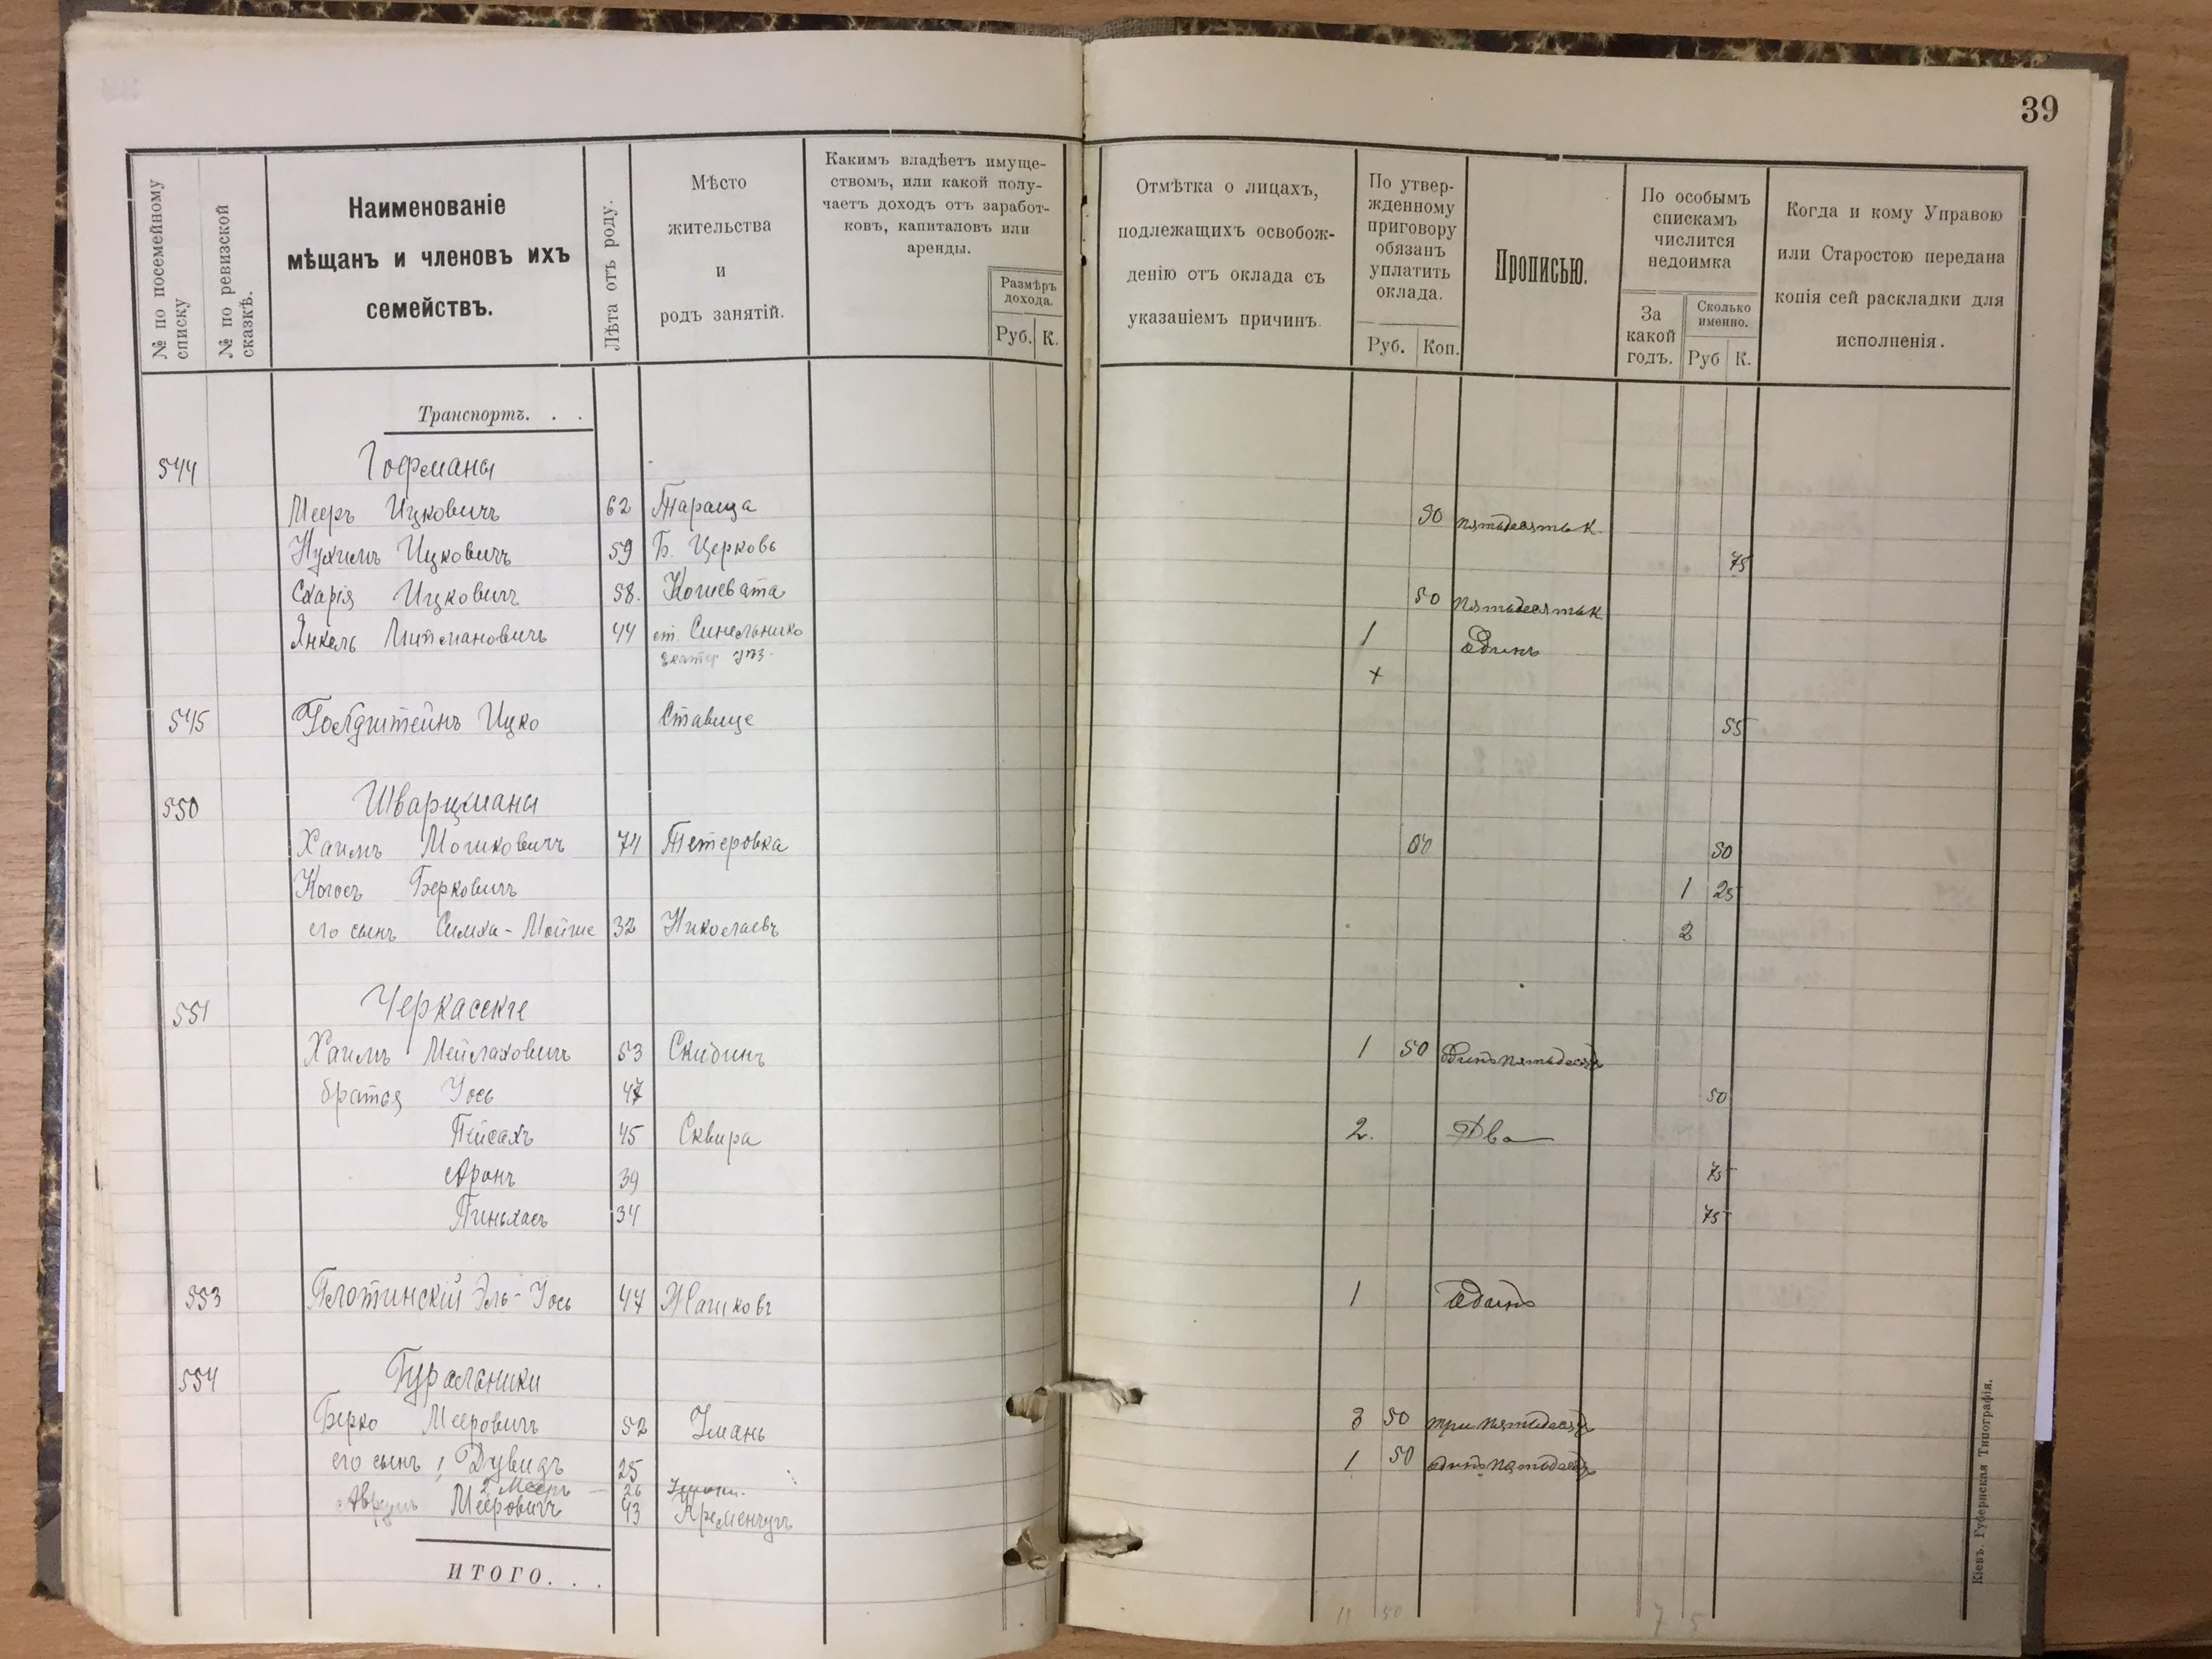 39
№ по посемейному списку
№ по ревизской сказкѣ.
Наименованіе мѣщанъ и членовъ ихъ семействъ.
Лѣта отъ роду.
Мѣсто жительства и родъ занятій.
Какимъ владѣетъ имуще-
ствомъ, или какой полу-
чаетъ доходъ отъ заработ-
ковъ, капиталовъ или
аренды.
Размѣръ дохода.
Руб. К.
Отмѣтка о лицахъ,
подлежащихъ освобож-
денію отъ оклада съ
указаніемъ причинъ.
По утвер-
жденному
приговору
обязанъ
уплатить
оклада.
Руб. Коп.
Прописью.
По особымъ
спискамъ
числится
недоимка
За какой годъ.
Сколько именно.
Руб К.
Когда и кому Управою
или Старостою передана
копія сей раскладки для
исполненія.
Транспортъ. . .
544 Гофманы
Мееръ Ицковичъ 62 Тараща 50 пятьдесять к
Нухимъ Ицковичъ 59 Б. Церковь 75
Схарія Ицковичъ 58. Кошевата 50 пятьдесять к
Янкель Липмановичъ 44 ст. Синельнико 1 Одинъ
+
545 Гольдштейнъ Ицко Ставище 55
550 Шварцманы
Хаимъ Мошковичъ 74 Тетеровка 50
Когосъ Берковичъ 1 25
его сынъ Симха-Мойше 32 Николаевъ 2
551 Черкасскіе
Хаимъ Мейлаховичъ 53 Сквдинъ 1 50 Одинъ пятьдесят
братья Іось 47 50
Пейсахъ 45 Сквира 2. Два
Аронъ 39 75
Пиньхасъ 34 75
553 Плотинскій Эль-Іось 47 Жашковъ 1 Одинъ
554 Гуральники
Берко Мееровичъ 52 Умань 3 50 три пятьдесят
его сынъ 1 Дувидъ 25 1 50 один пятьдесят
2 Мееръ 26
Аврумъ Мееровичъ 43 Кременчугъ
ИТОГО. . .
11 50 7 5
Кіевъ. Губернская Типографія.